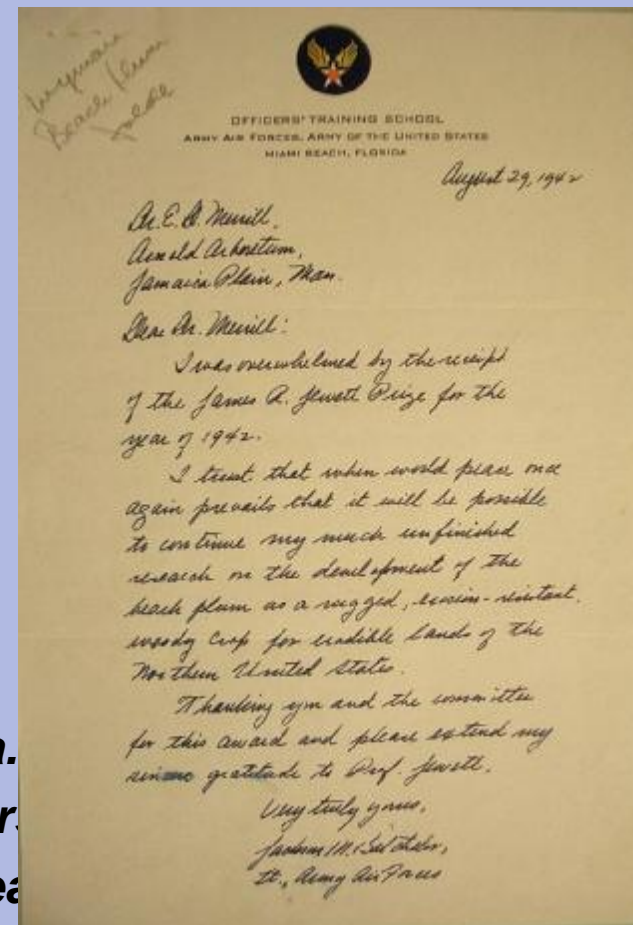 Beach Plum
OFFICERS' TRAINING SCHOOL
ARMY AIR FORCES, ARMY OF THE UNITED STATES
MIAMI BEACH, FLORIDA
August 29, 1942
Dr. E. D. Merrill,
Arnold Arboretum,
Jamaica Plain, Mass.
Dear Dr. Merrill:
I was overwhelmed by the receipt
of the James R. Jewett Prize for the
year of 1942.
I trust that when world peace once
again prevails that it will be possible
to continue my much unfinished
research on the development of the
beach plum as a rugged, erosion-resistant,
woody crop for erodible lands of the
Northern United States.
Thanking you and the committee
for this award and please extend my
sincere gratitude to Prof. Jewett.
Very truly yours,
Lt., Army Air Forces